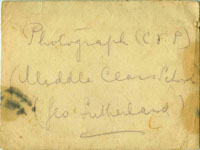 Photograph (C & P)
(Maddle Class School
(Geo: Sutherland)